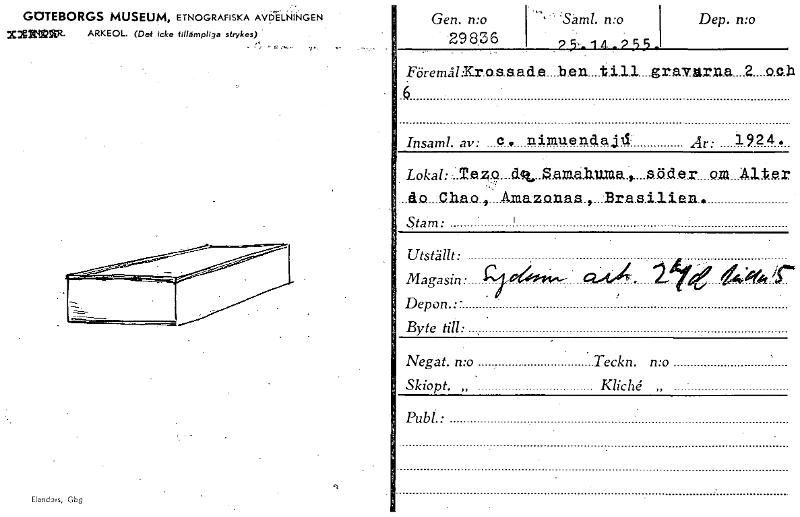 GÖTEBORGS MUSEUM, ETNOGRAFISKA AVDELNINGEN
ARKEOL. (Det icke tillämpliga strykes)
Elanders, Gbg
Gen. n:o Saml. n:o Dep. n:o
29836 25.14.255.
Föremål: Krossade ben till gravarna 2 och
6
Insaml. av: c. nimuendajú År: 1924.
Lokal: Tezo de Samahuma, söder om Alter
do Chao, Amazonas, Brasilien.
Stam:
Utställt:
Magasin: Sydam ark.
Depon.:
Byte till:
Negat. n:o Teckn. n:o
Skiopt. „ Kliché „
Publ.: